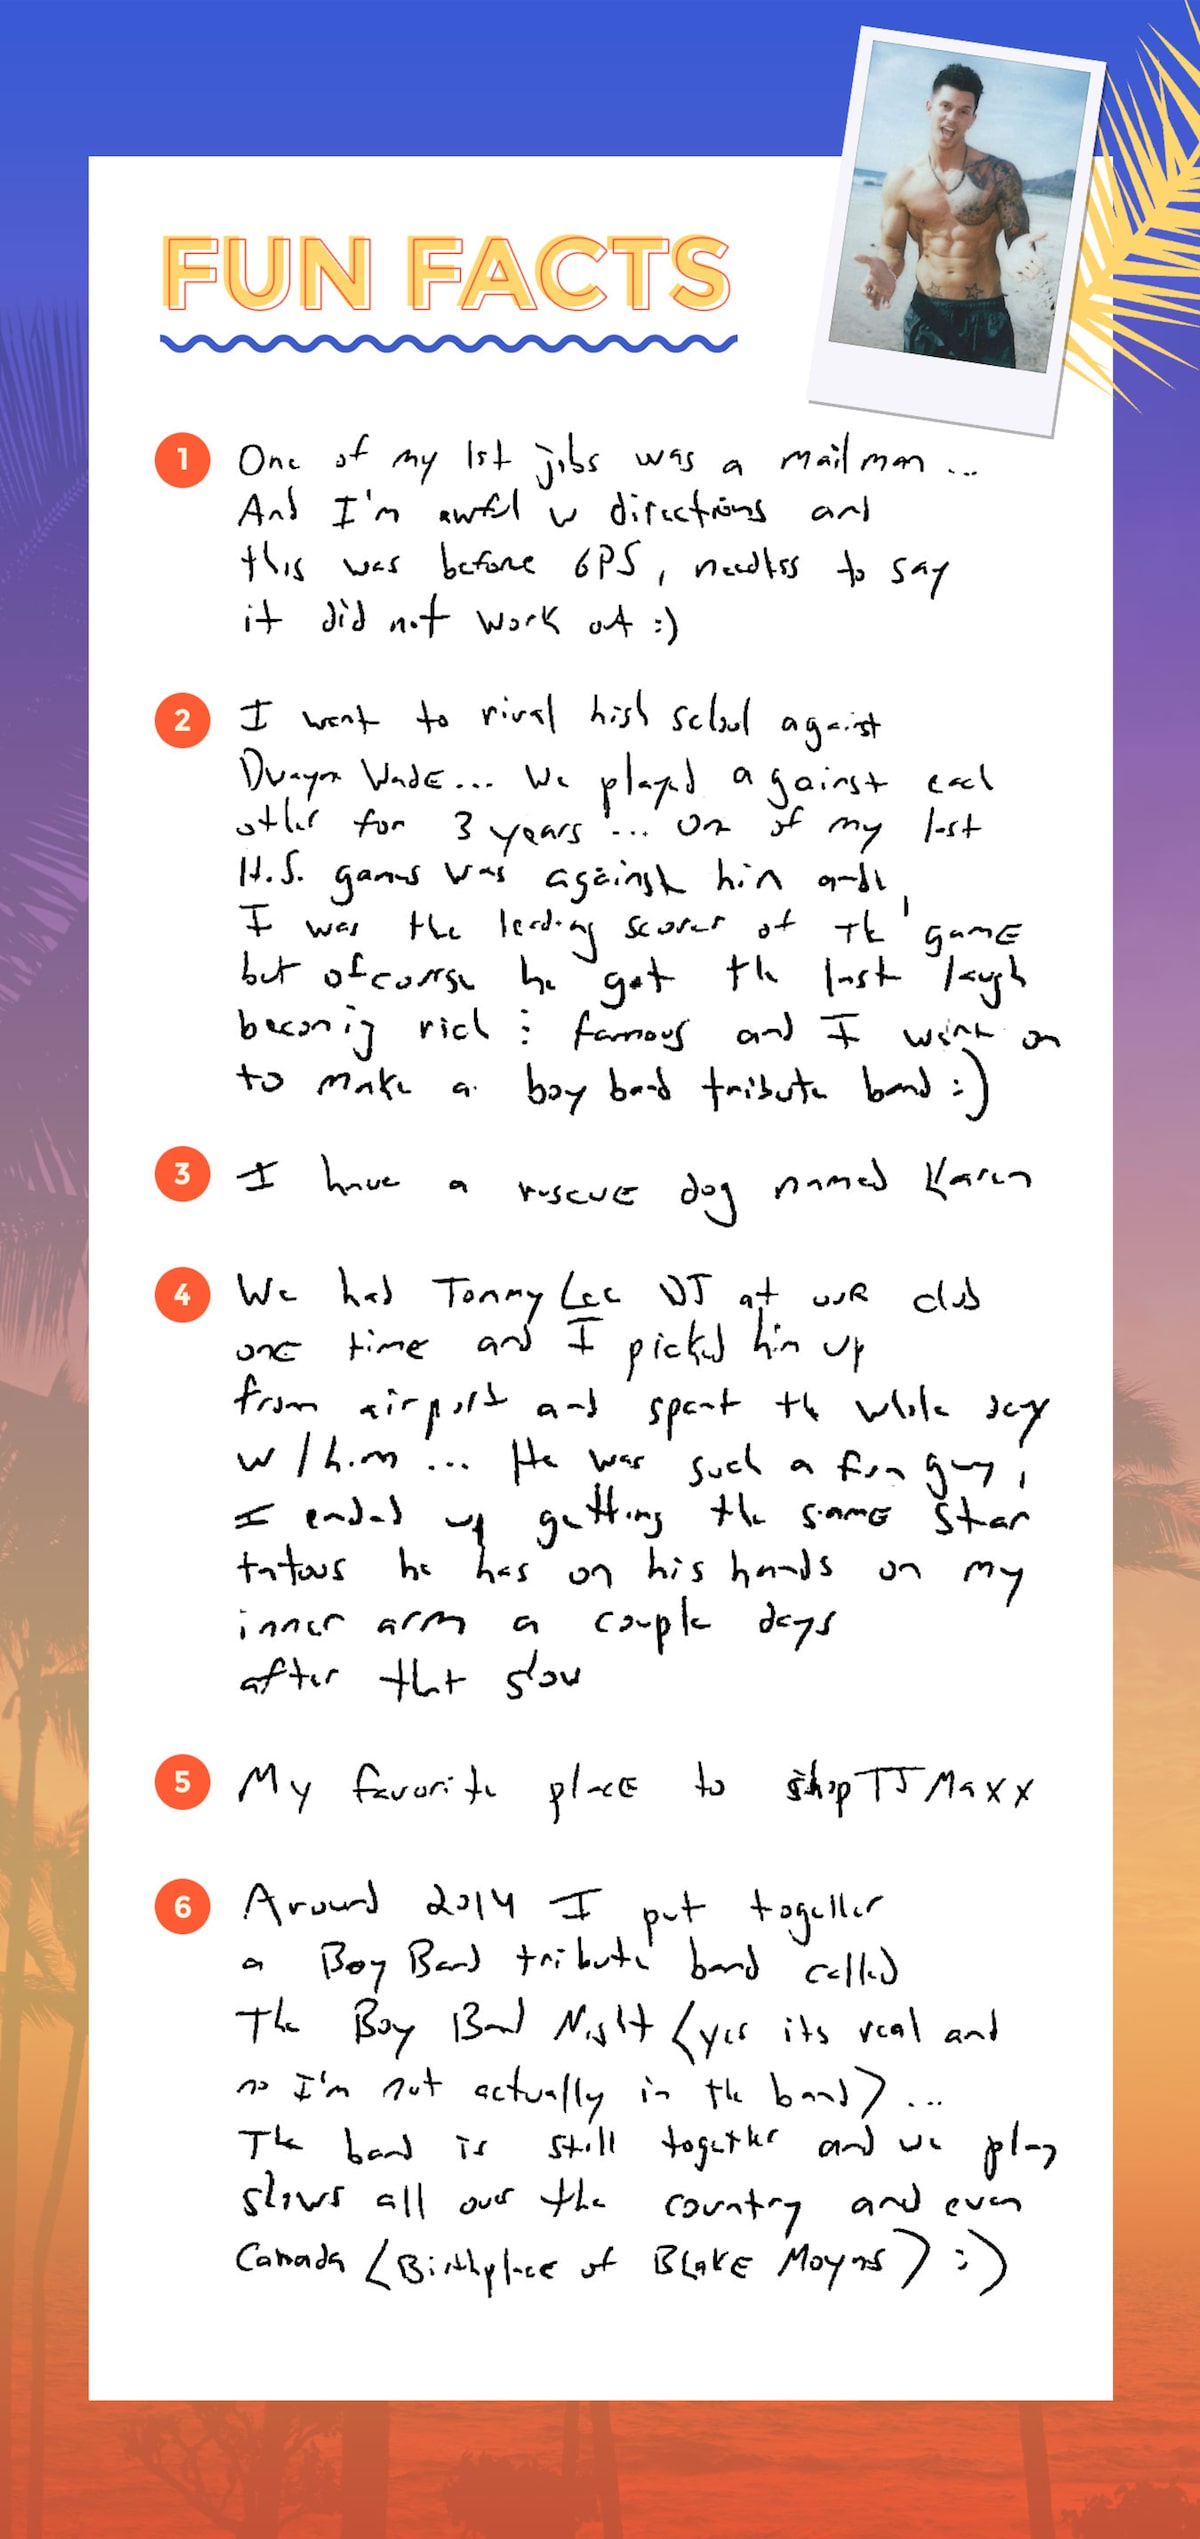 FUN FACTS
1 One of my 1st jobs was a mail man ...
And I'm awful w directions and
this was before GPS, needless to say
it did not work out :)
2 I went to rival high school against
Dwayne Wade... We played against each
other for 3 years ... One of my last
H.S. games was against him and
I was the leading scorer of the game
but ofcourse he got the last laugh
becoming rich & famous and I went on
to make a boy band tribute band :)
3 I have a rescue dog named Karen
4 We had Tommy Lee DJ at our club
one time and I picked him up
from airport and spent the whole day
w/him ... He was such a fun guy,
I ended up getting the same star
tatows he has on his hands on my
inner arm a couple days
after that show
5 My favorite place to shop TJ Maxx
6 Around 2014 I put together
a Boy Band tribute band called
The Boy Band Night (yes its real and
no I'm not actually in the band) ...
The band is still together and we play
shows all over the country and even
Canada (Birthplace of BLAKE Moynes) :)